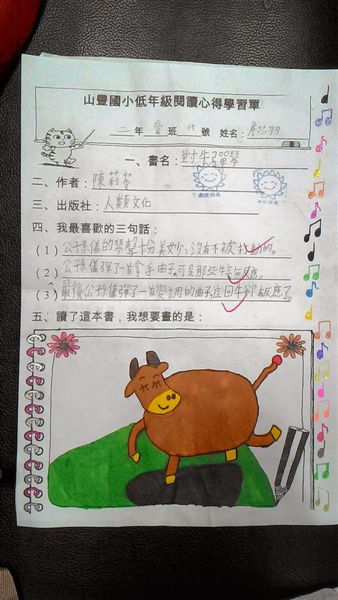 山豐國小低年級閱讀心得學習單
二年 愛班 15號 姓名：
一、書名：對牛彈琴
二、作者：陳莉苓
三、出版社：人類文化
四、我最喜歡的三句話：
(1) 公孫儀的琴聲十分美妙,沒有不被打動的。
(2) 公孫儀彈了一首拿手曲子,可是那些牛沒反應。
(3) 最後公孫儀彈了一首變調的曲子,這回牛卻有反應了。
五、讀了這本書，我想要畫的是：